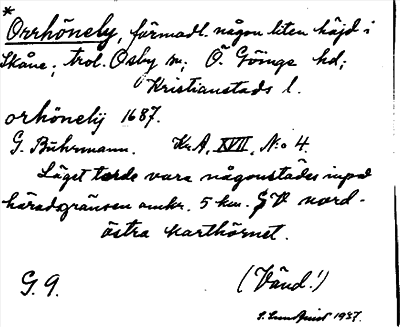 *
Orrhönely, förmodl. någon liten höjd i
Skåne; trol. Osby sn; Ö. Göinge hd;
Kristianstads l.
orhönelij 1687.
G. Buhrmann. Kr.A, XVII, N:o 4.
Läget torde vara någonstädes inpå
häradsgränsen omkr. 5 km. SV nord-
östra karthörnet.
G. 9. (Vänd!)
S. Lundquist 1937.